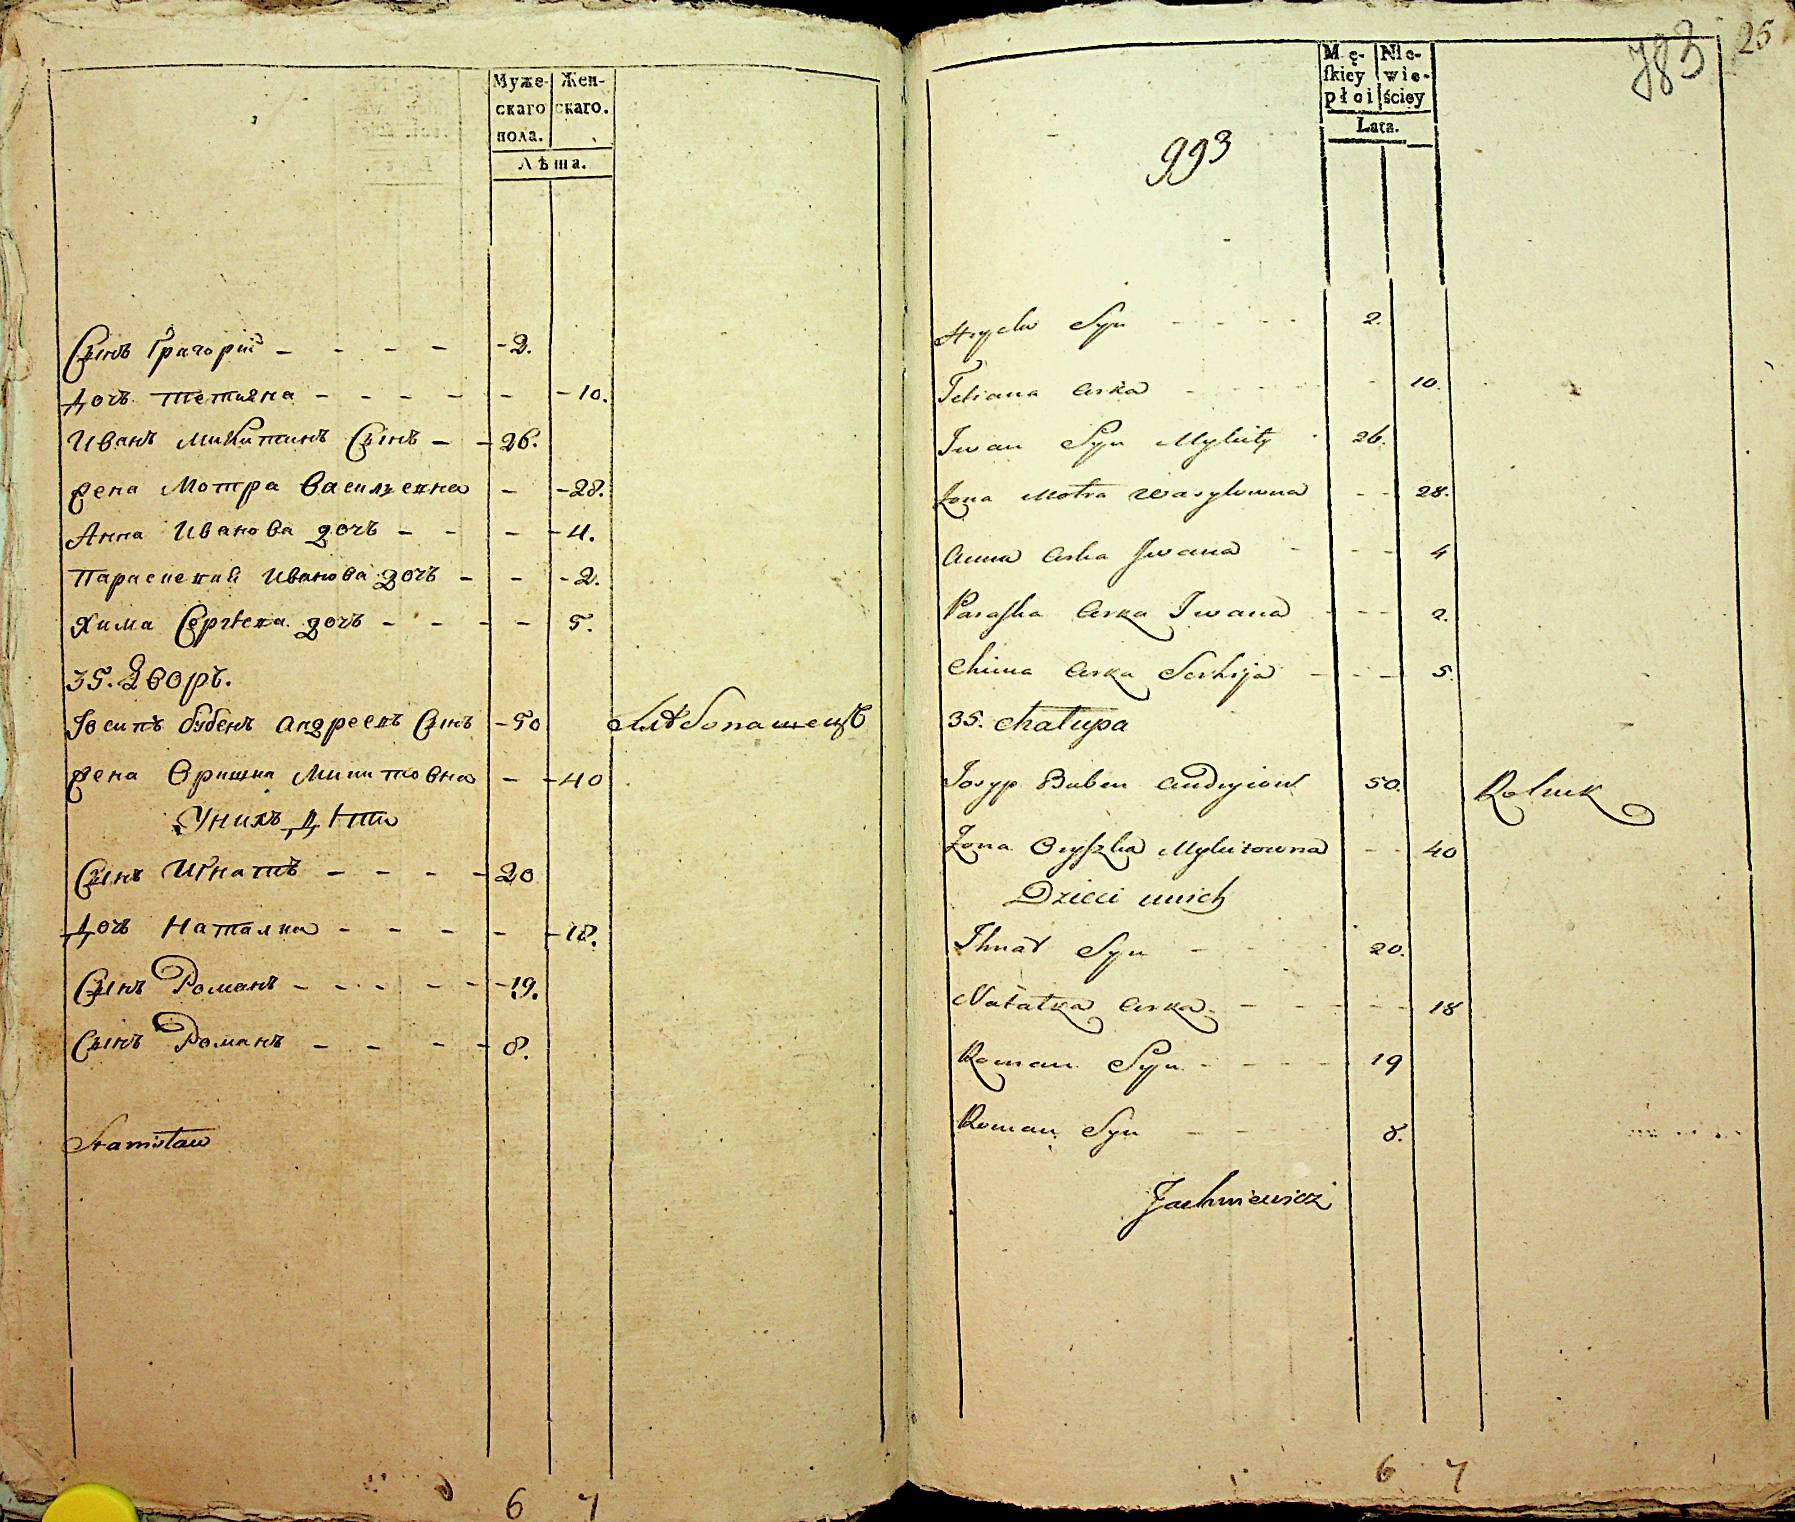 Муже- Жен-
скаго скаго.
пола.
Лѣта.
Сынъ Григорій - - - - - 2.
Дочь Тетияна - - - - - - 10.
Иванъ Микитинъ Сынъ - - 26.
Жена Мотра Васильевна - - 28.
Анна Иванова дочь - - - - 4.
Параскевия Иванова дочь - - - 2.
Хима Сергѣева дочь - - - - 5.
35. Дворъ.
Іосипъ Бубенъ Андреевъ Сынъ - 50 Хлѣбопашецъ
Жена Оришка Микитовна - - 40
У нихъ дѣти
Сынъ Игнатъ - - - - 20
Дочь Наталка - - - - - 18.
Сынъ Романъ - - - - - - 19.
Сынъ Романъ - - - - 8.
Stanisław
6 7
783 25
Mę- Nie-
ſkiey wie-
płci ściey
Lata.
993
Hryćko Syn - - - - 2.
Tetiana Córka - - - - - 10.
Iwan Syn Mykity 26.
Żona Motra Wasylowna - - 28.
Anna Córka Iwana - - - 4
Paraſka Córka Iwana - - - 2.
Chima Córka Serhija - - - 5.
35. Chałupa
Josyp Buben Andryiow 50. Rolnik
Żona Oryſzka Mykitowna - - 40
Dzieci unich
Ihnat Syn - - - 20.
Natałka Córka - - - - - 18
Roman Syn - - - - 19
Roman Syn - - - 8.
Jachniewicz
6 7